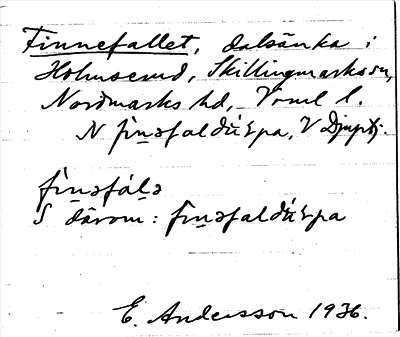 Finnefallet, dalsänka i
Holmserud, Skillingmarks sn,
Nordmarks hd, Vrml l.
N fìn̠əfaldú̀pa, V Djupkj.
fìn̠əfál̠ə
S därom: fìn̠əfaldú̀pa
E. Andersson 1936.